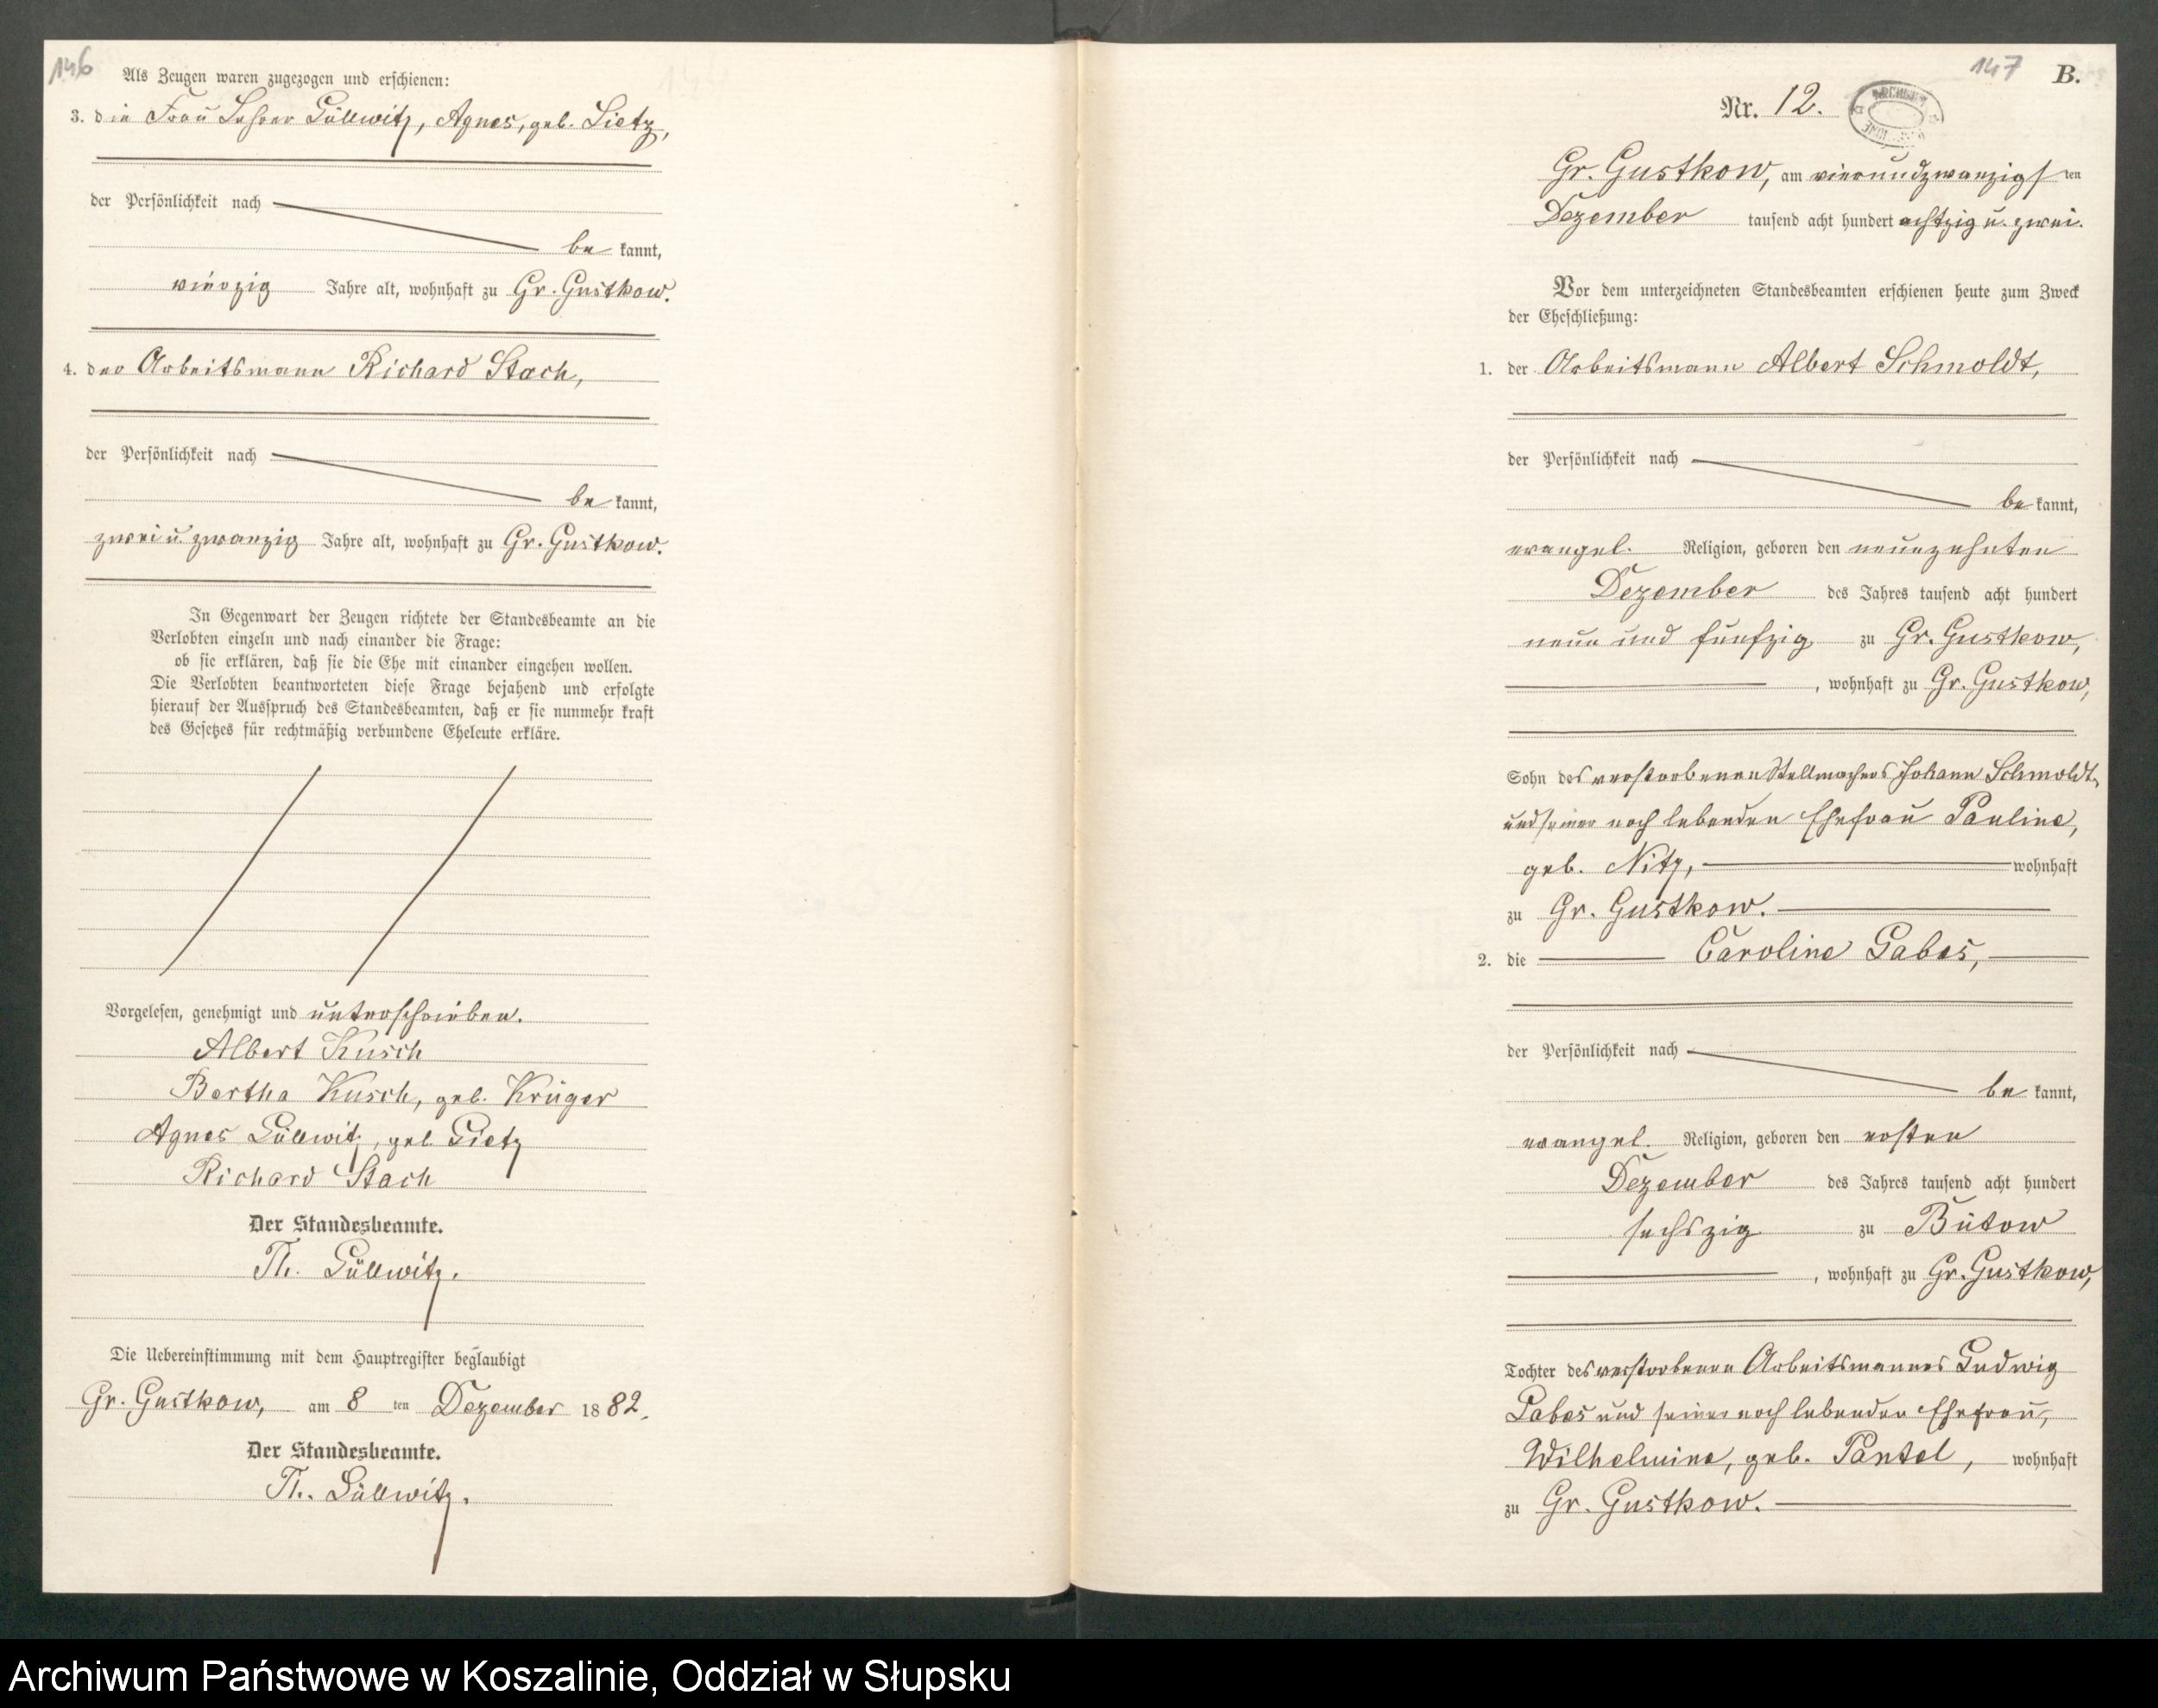 146
Als Zeugen waren zugezogen und erschienen:
3. die Frau Lehrer Lüllwitz, Agnes, geb. Lietz,
der Persönlichkeit nach
be kannt,
vierzig Jahre alt, wohnhaft zu Gr. Gustkow.
4. der Arbeitsmann Richard Stach,
der Persönlichkeit nach
be kannt,
zwei u. zwanzig Jahre alt, wohnhaft zu Gr. Gustkow.
In Gegenwart der Zeugen richtete der Standesbeamte an die
Verlobten einzeln und nach einander die Frage:
ob sie erklären, daß sie die Ehe mit einander eingehen wollen.
Die Verlobten beantworteten diese Frage bejahend und erfolgte
hierauf der Ausspruch des Standesbeamten, daß er sie nunmehr kraft
des Gesetzes für rechtmäßig verbundene Eheleute erkläre.
Vorgelesen, genehmigt und unterschrieben.
Albert Kusch
Bertha Kusch, geb. Krüger
Agnes Lüllwitz, geb. Lietz
Richard Stach
Der Standesbeamte.
Th. Lüllwitz.
Die Uebereinstimmung mit dem Hauptregister beglaubigt
Gr. Gustkow, am 8 ten Dezember 1882.
Der Standesbeamte.
Th. Lüllwitz.
147 B.
Nr. 12.
Gr. Gustkow, am vierundzwanzigsten
Dezember tausend acht hundert achtzig u. zwei.
Vor dem unterzeichneten Standesbeamten erschienen heute zum Zweck
der Eheschließung:
1. der Arbeitsmann Albert Schmoldt,
der Persönlichkeit nach
be kannt,
evangel. Religion, geboren den neunzehnten
Dezember des Jahres tausend acht hundert
neun und fünfzig zu Gr. Gustkow,
, wohnhaft zu Gr. Gustkow,
Sohn des verstorbenen Stellmachers Johann Schmoldt,
und seiner noch lebenden Ehefrau Pauline,
geb. Nitz, wohnhaft
zu Gr. Gustkow.
2. die Caroline Labes,
der Persönlichkeit nach
be kannt,
evangel. Religion, geboren den ersten
Dezember des Jahres tausend acht hundert
sechszig zu Bütow
, wohnhaft zu Gr. Gustkow,
Tochter des verstorbenen Arbeitsmannes Ludwig
Labes und seiner noch lebenden Ehefrau,
Wilhelmine, geb. Pantel, wohnhaft
zu Gr. Gustkow.
Archiwum Państwowe w Koszalinie, Oddział w Słupsku